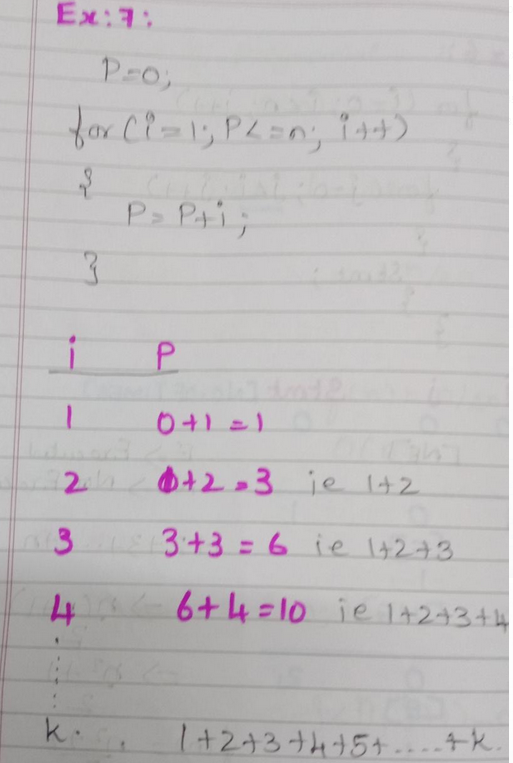 Ex:7:
P=0;
for(i=1; P<=n; i++)
{
P=P+i;
}
i P
1 0+1=1
2 1+2=3 ie 1+2
3 3+3=6 ie 1+2+3
4 6+4=10 ie 1+2+3+4
k. . 1+2+3+4+5+.....+k.